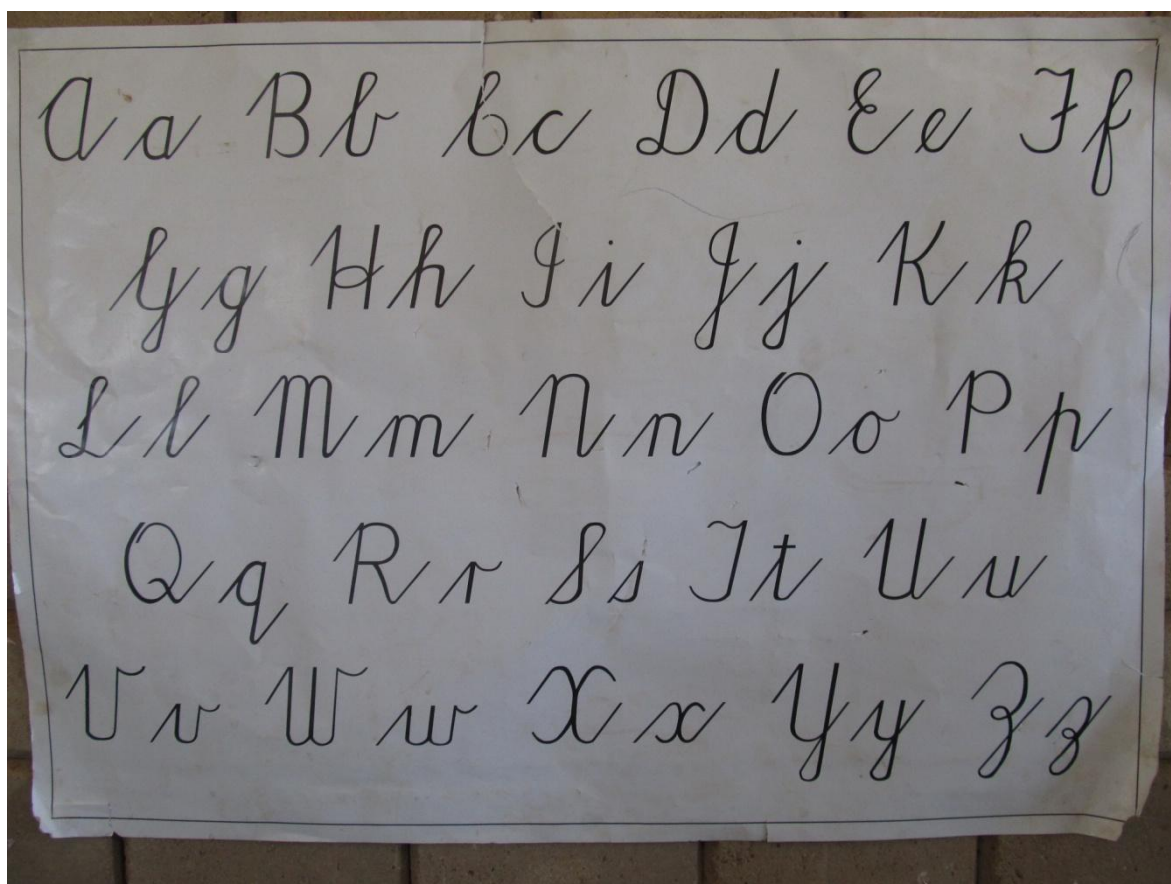 A a B b C c D d E e F f
G g H h I i J j K k
L l M m N n O o P p
Q q R r S s T t U u
V v W w X x Y y Z z